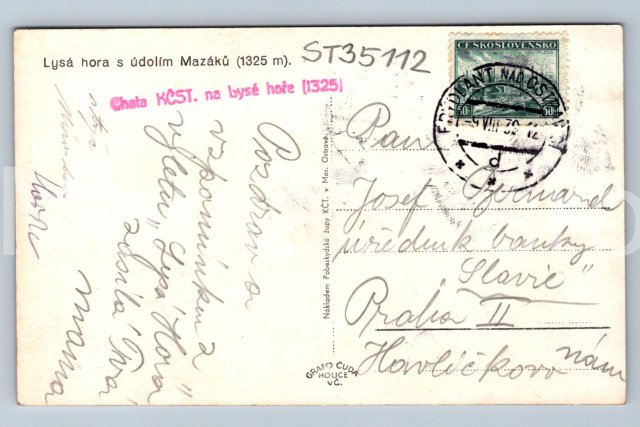 Lysá hora s údolím Mazáků (1325 m).
ST35112
Chata KČST. na Lysé hoře (1325)
ČESKOSLOVENSKO
50h
50h
FRÝDLANT NAD OSTR
VIII 39 12
d
Pozdrav a
vzpomínku z
výletu „Lysá Hora"
zasílá Tvá
mama
Pan
Josef
úředník banky
„Slavie"
Praha II
Havlíčkovo nám
Nákladem Pobeskydské župy KČT. v Mor. Ostravě
GRAFO ČUDA
HOLICE
V Č.